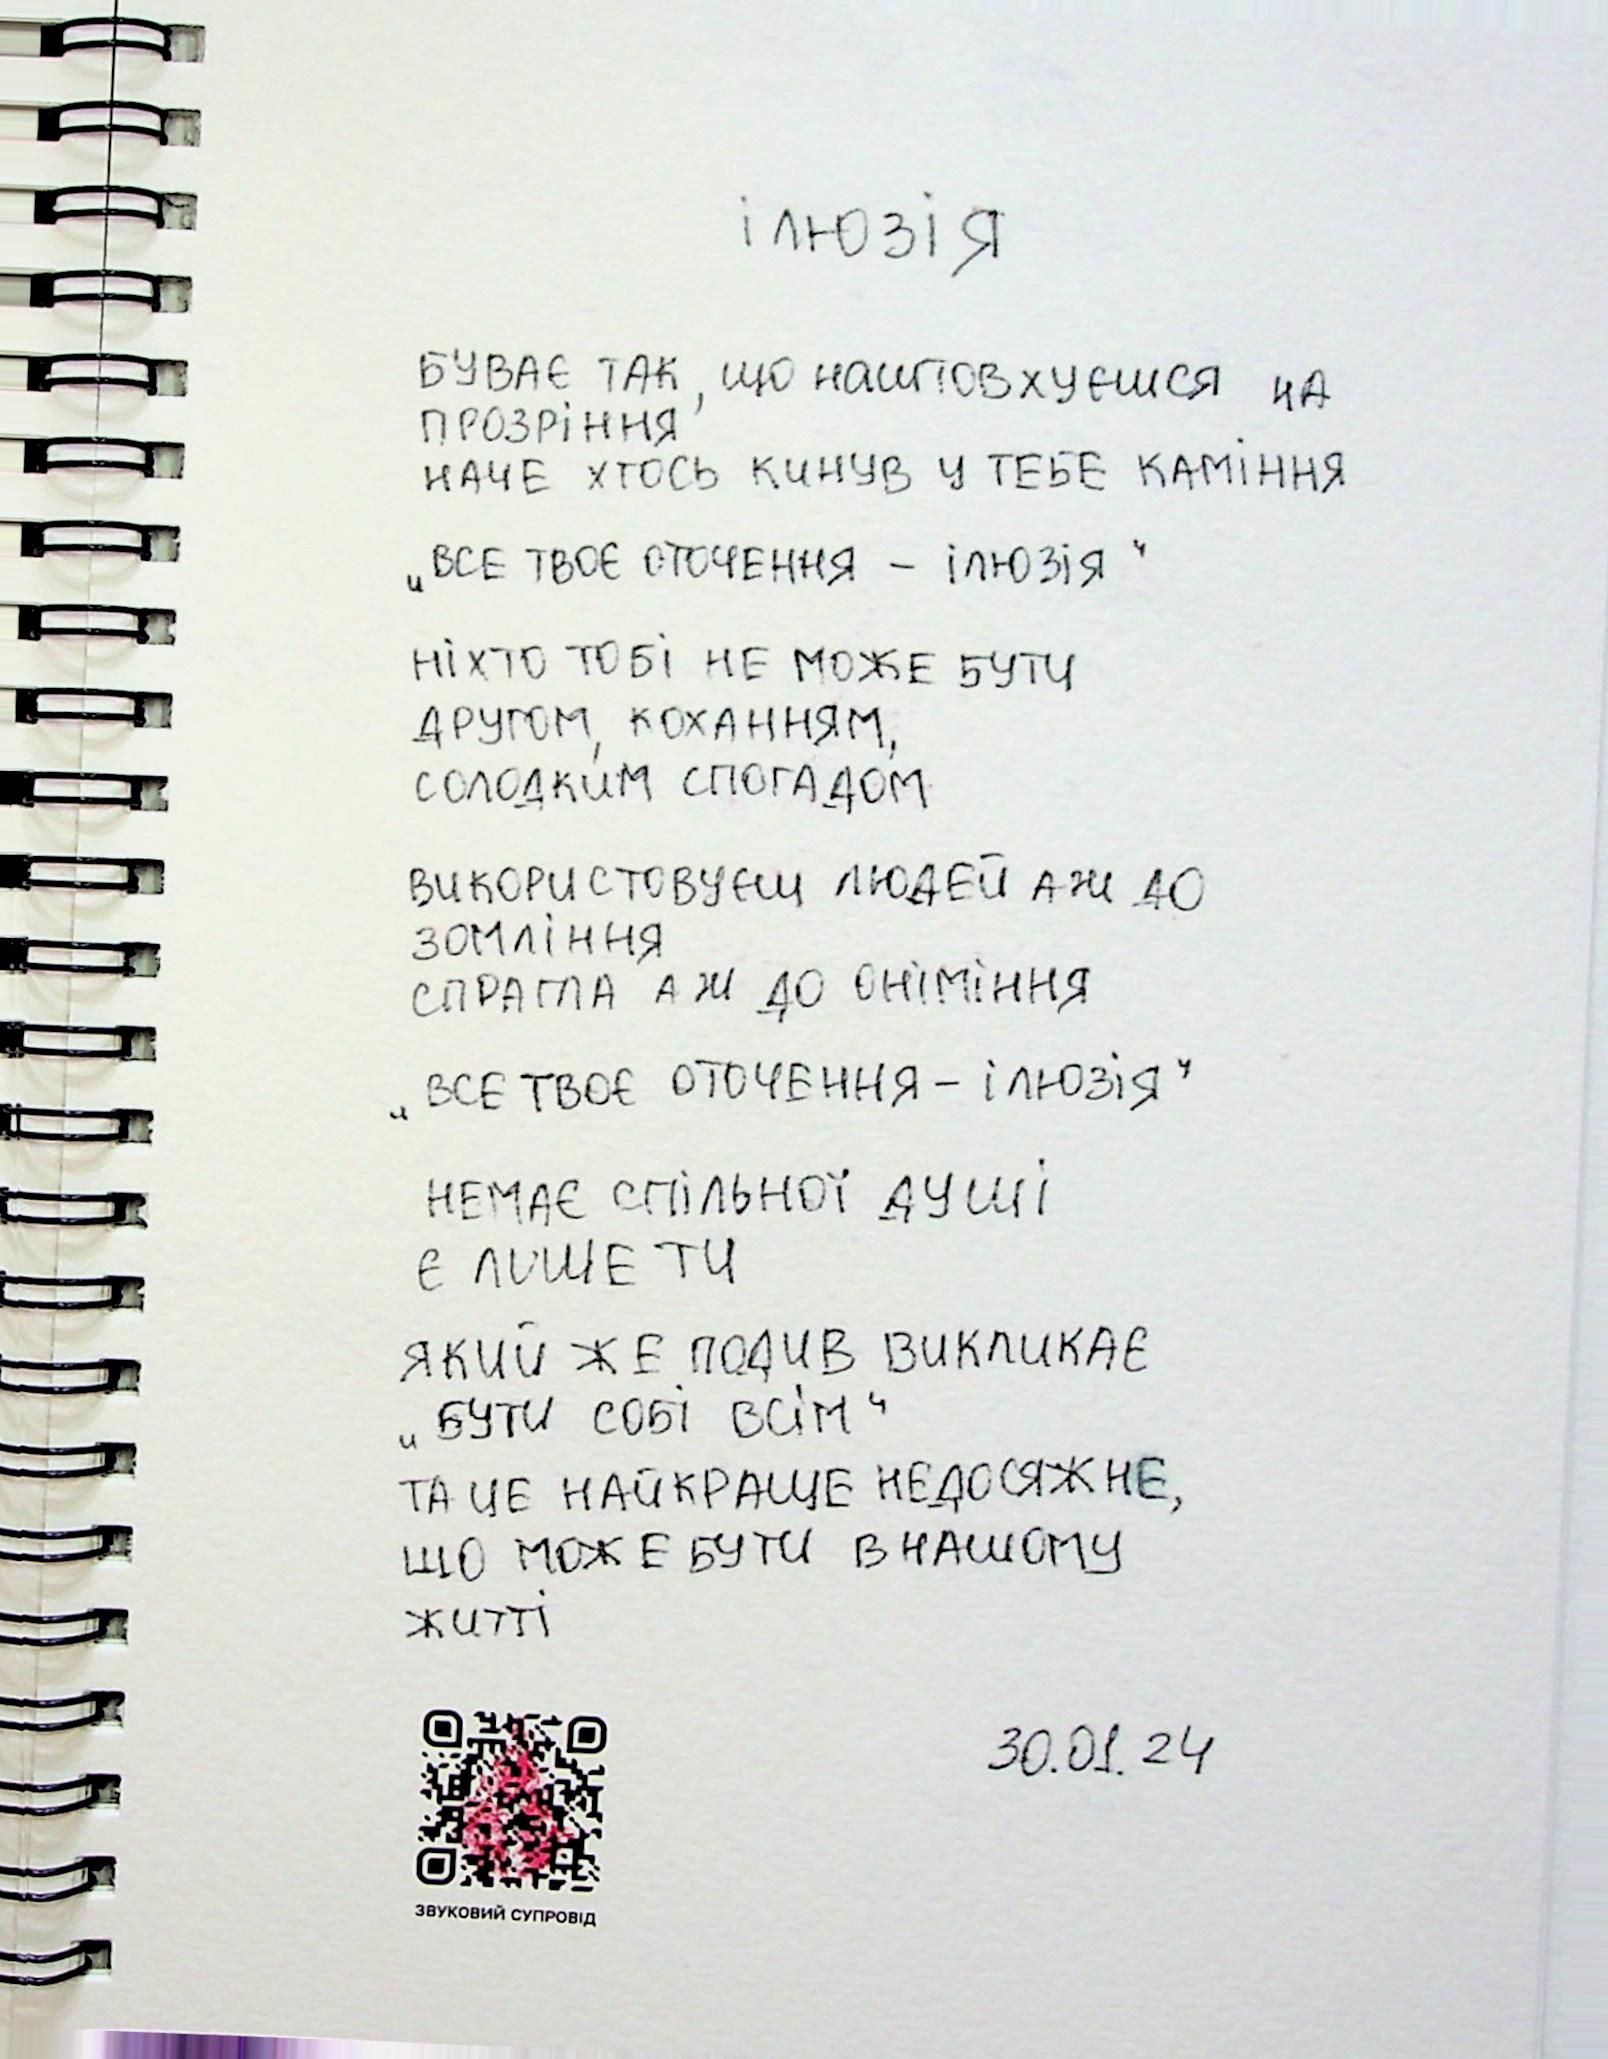 ілюзія
БУВАЄ ТАК, ЩО НАШТОВХУЄШСЯ НА
ПРОЗРІННЯ
НАЧЕ ХТОСЬ КИНУВ У ТЕБЕ КАМІННЯ
„ВСЕ ТВОЄ ОТОЧЕННЯ – ІЛЮЗІЯ"
НІХТО ТОБІ НЕ МОЖЕ БУТИ
ДРУГОМ, КОХАННЯМ,
СОЛОДКИМ СПОГАДОМ
ВИКОРИСТОВУЄШ ЛЮДЕЙ АЖ ДО
ЗОМЛІННЯ
СПРАГЛА АЖ ДО ОНІМІННЯ
„ВСЕ ТВОЄ ОТОЧЕННЯ – ІЛЮЗІЯ"
НЕМАЄ СПІЛЬНОЇ ДУШІ
Є ЛИШЕ ТИ
ЯКИЙ ЖЕ ПОДИВ ВИКЛИКАЄ
„БУТИ СОБІ ВСІМ"
ТА ЦЕ НАЙКРАЩЕ НЕДОСЯЖНЕ,
ЩО МОЖЕ БУТИ В НАШОМУ
ЖИТТІ
30.01.24
ЗВУКОВИЙ СУПРОВІД